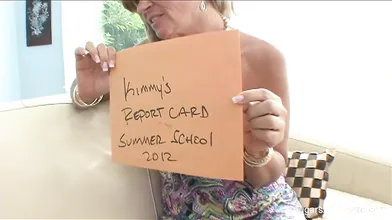 Kimmy's
REPORT CARD
SUMMER SCHOOL
2012